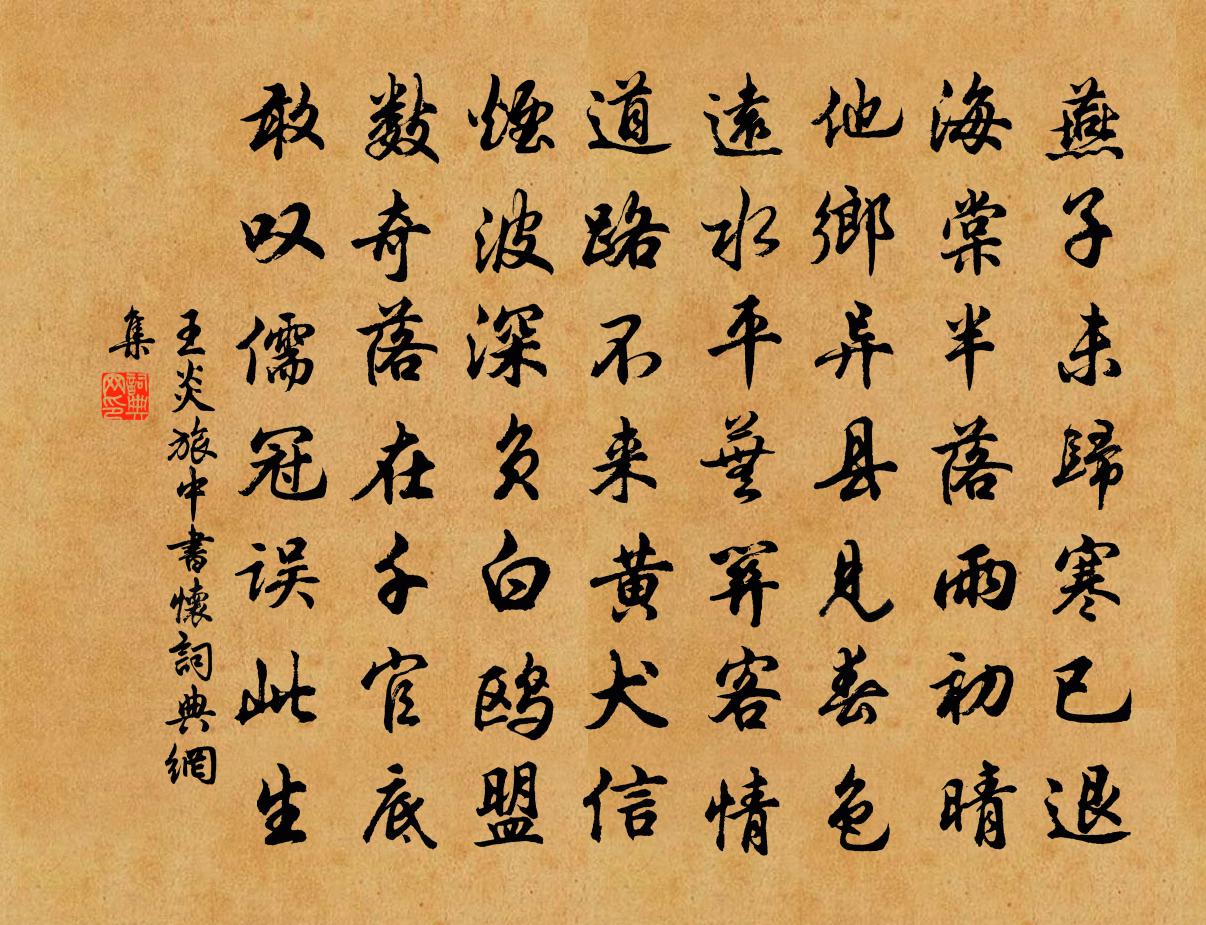 燕子未歸寒已退
海棠半落雨初晴
他鄉异县見春色
遠水平蕪筭客情
道路不来黄犬信
煙波深负白鸥盟
数奇落在千官底
敢叹儒冠误此生
王炎旅中書懷詞典網
集
詞典网印